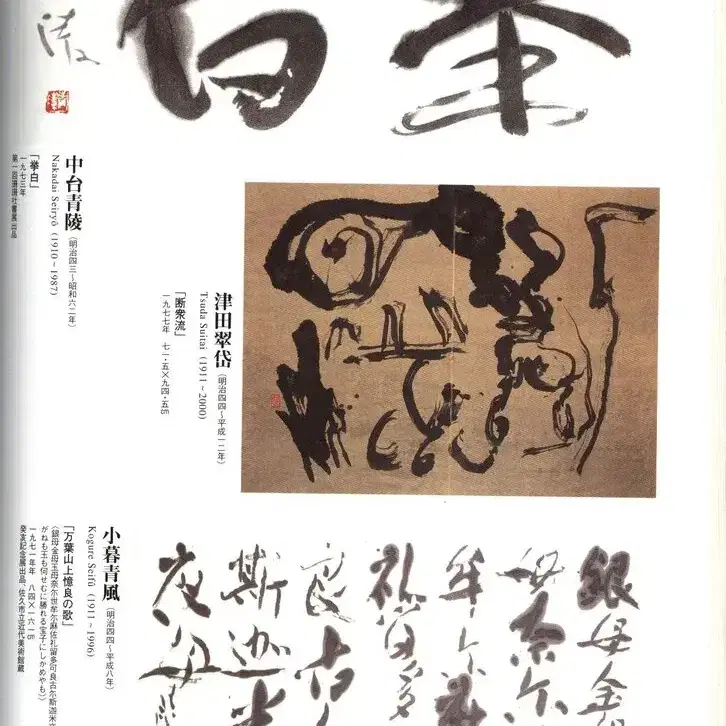 中台青陵（明治四三～昭和六二年）
Nakadai Seiryō (1910~1987)
「挙白」
一九七三年
津田翠岱（明治四四～平成一二年）
Tsuda Suitai (1911~2000)
「断衆流」
一九七七年 七一・五×九四・五㎝
銀母金
母奈尓
牟尓
留多
良古
斯迦米
夜母
小暮青風（明治四四～平成八年）
Kogure Seifū (1911~1996)
「万葉山上憶良の歌」
（銀母金母玉母奈尓世牟尓麻佐礼留多可良古尓斯迦米
がねも玉も何せむに勝れる宝子にしかめやも））
一九七一年年 八四×一六一㎝
癸亥記念展出品／佐久市立近代美術館蔵